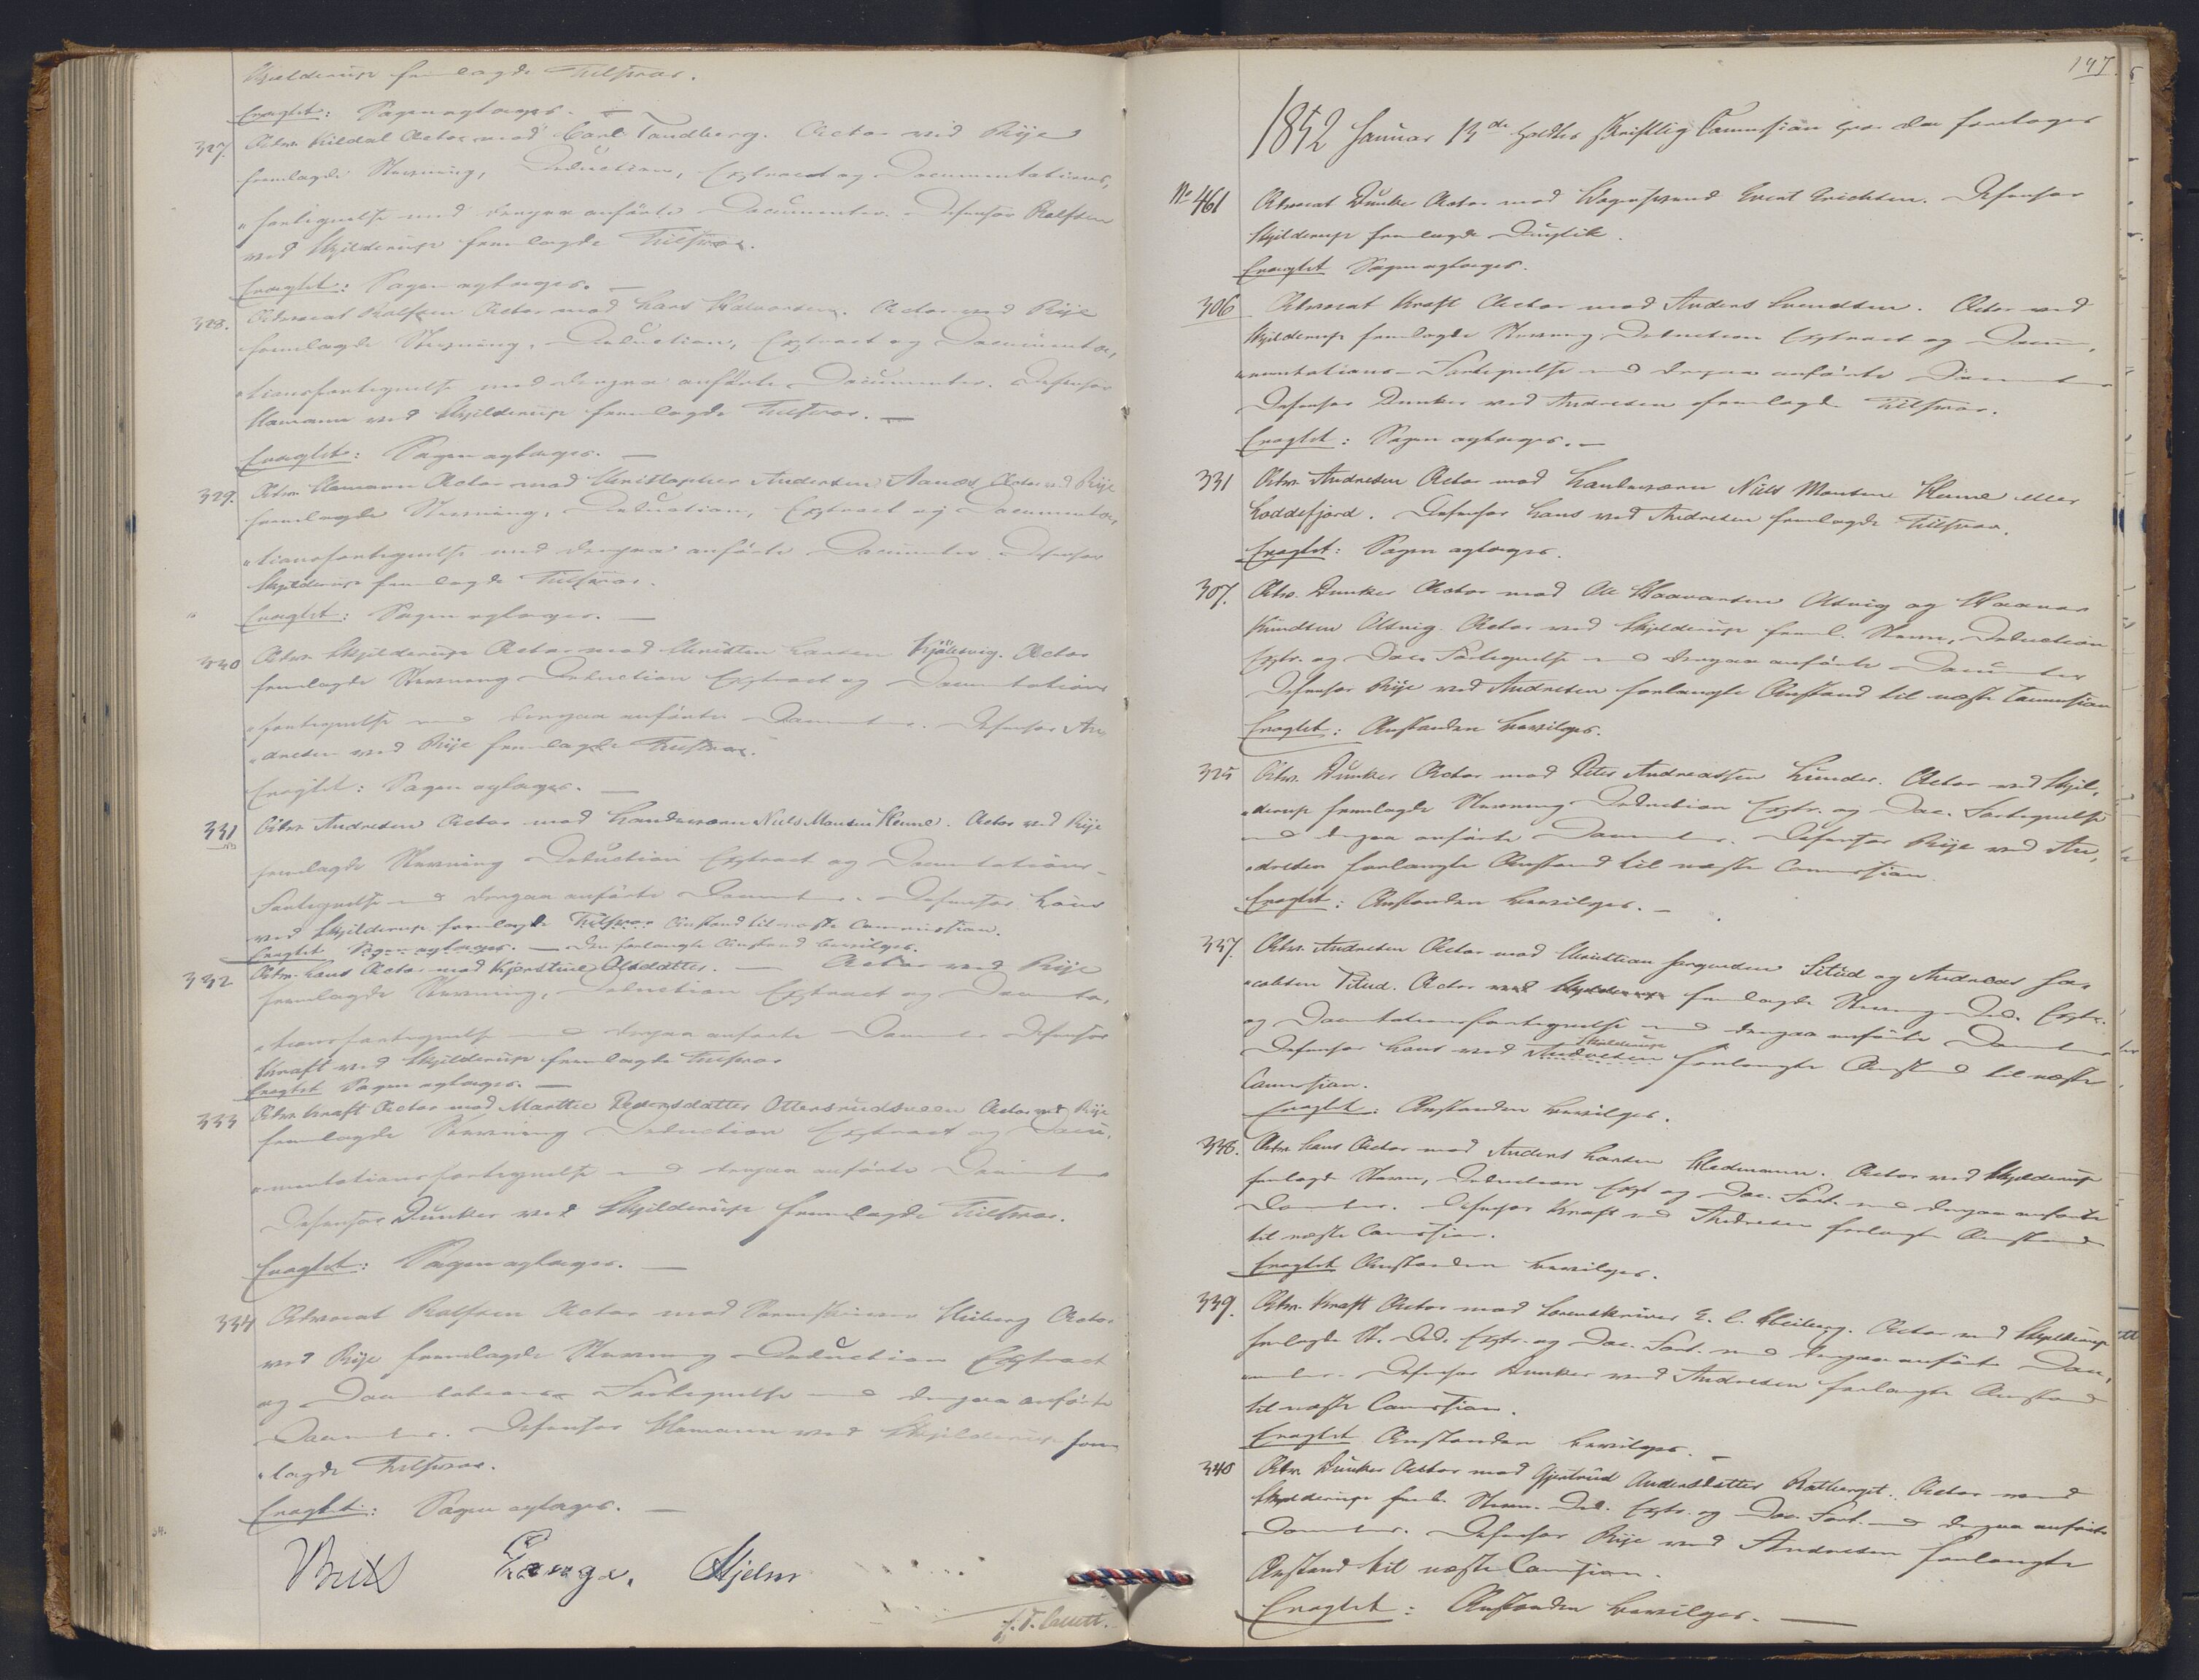 Skjelderup fremlagde Tilsvar.
Eragtet: Sagen optages. —
327. Adv. Kildal Actor mod Carl Tandberg. Actor ved Rije
fremlagde Stevning, Deduction, Extract og Documentations,
"fortegnelse med derpaa anførte Documenter. Defensor Rolfsen
ved Skjelderup fremlagde Tilsvar.
Eragtet: Sagen optages. —
328. Advocat Rolfsen Actor mod Lars Halvorsen. Actor ved Rije
fremlagde Stevning, Deduction, Extract og Documenta,
"tionsfortegnelse med derpaa anførte Documenter. Defensor
Homann ved Skjelderup fremlagde Tilsvar. —
Eragtet: Sagen optages. —
329. Adv. Homann Actor mod Christopher Andersen Aanæs Actor ved Rije
fremlagde Stevning, Deduction, Extract og Documenta,
"tionsfortegnelse med derpaa anførte Documenter. Defensor
Skjelderup fremlagde Tilsvar.
Eragtet: Sagen optages. —
330 Adv. Skjelderup Actor mod Christen Larsen Kjølsvig. Actor
fremlagde Stevning Deduction Extract og Documentations
"fortegnelse med derpaa anførte Documenter. Defensor An
"dresen ved Rije fremlagde Tilsvar.
Eragtet: Sagen optages. —
331 Adv. Andresen Actor mod Landeværn Niels Monsen Henne. Actor ved Rije
fremlagde Stevning Deduction Extract og Documentations-
Fortegnelse med derpaa anførte Documenter. Defensor Hans
ved Skjelderup forlangte Tilsvar Anstand til næste Commission.
Eragtet Sagen optages. — den forlangte Anstand bevilges.
332 Adv. Hans Actor mod Kjerstine Olsdatter. — Actor ved Rije
fremlagde Stevning, Deduction Extract og Documenta,
"tionsfortegnelse med derpaa anførte Documenter Defensor
Kraft ved Skjelderup fremlagde Tilsvar
Eragtet Sagen optages. —
333 Adv. Kraft Actor mod Marthe Pedersdatter Ottersrudsveen Actor ved Rije
fremlagde Stevning Deduction Extract og Docu,
"mentationsfortegnelse med derpaa anførte Documenter
Defensor Dunker ved Skjelderup fremlagde Tilsvar.
Eragtet: Sagen optages. —
334 Advocat Rolfsen Actor mod Sorenskriver Heiberg Actor
ved Rije fremlagde Stevning Deduction Extract
og Documentations Fortegnelse med derpaa anførte
Documenter. Defensor Homann ved Skjelderup frem
"lagde Tilsvar.
Eragtet: Sagen optages. —
Lange. Hjelm
197.
1852 Januar 13de holdtes skriftlig Commission hvor da foretoges
No 461 Advocat Dunker Actor mod Evert Erichsen. Defensor
Skjelderup fremlagde Duplik.
Eragtet Sagen optages.
306 Advocat Kraft Actor mod Anders Svendsen. Actor ved
Skjelderup fremlagde Stevning Deduction Extract og Docu,
"mentations-Fortegnelse med derpaa anførte Documenter
Defensor Dunker ved Andresen fremlagde Tilsvar.
Eragtet: Sagen optages. —
331 Adv. Andresen Actor mod Landeværn Niels Monsen Henne eller
Loddefjord. Defensor Hans ved Andresen fremlagde Tilsvar.
Eragtet: Sagen optages.
307. Adv. Dunker Actor mod Ole Haavorsen Olsvig og Haavor
Knudsen Olsvig. Actor ved Skjelderup freml. Stevn, Deduction
Extr. og Doc. Fortegnelse med derpaa anførte Documenter
Defensor Rije ved Andresen forlangte Anstand til næste Commission
Eragtet: Anstanden bevilges.
325 Adv. Dunker Actor mod Peter Andreassen Lunder. Actor ved Skjel,
"derup fremlagde Stevning Deduction Extr. og Doc. Fortegnelse
med derpaa anførte Documenter. Defensor Rije ved An,
"dresen forlangte Anstand til næste Commission
Eragtet: Anstanden bevilges. —
337. Adv. Andresen Actor mod Christian Jørgensen Situd og Andreas Ja,
"cobsen Situd. Actor ved Skjelderup fremlagde Stevning Ded. Extr.
og Documentationsfortegnelse med derpaa anførte Documenter
Defensor Hans ved Andresen Skjelderup forlangte Anstand til næste
Commission.
Eragtet: Anstanden bevilges.
338. Adv. Hans Actor mod Anders Larsen Hedemann. Actor ved Skjelderup
fremlagde Stevn, Deduction Extr og Doc. Fort. med derpaa anførte
Documenter. Defensor Kraft ved Andresen forlangte Anstand
til næste Commission.
Eragtet Anstanden bevilges.
339. Adv. Kraft Actor mod Sorenskriver E. C. Heiberg. Actor ved Skjelderup
fremlagde St. Ded. Extr. og Doc. Fort. med derpaa anførte Docu,
"menter. Defensor Dunker ved Andresen forlangte Anstand
til næste Commission.
Eragtet Anstanden bevilges. —
340 Adv. Dunker Actor mod Gjertrud Andersdatter Actor ved
Skjelderup freml. Stevn. Ded. Extr. og Doc. Fort. med derpaa anførte
Documenter. Defensor Rije ved Andresen forlangte
Anstand til næste Commission.
Eragtet: Anstanden bevilges. —